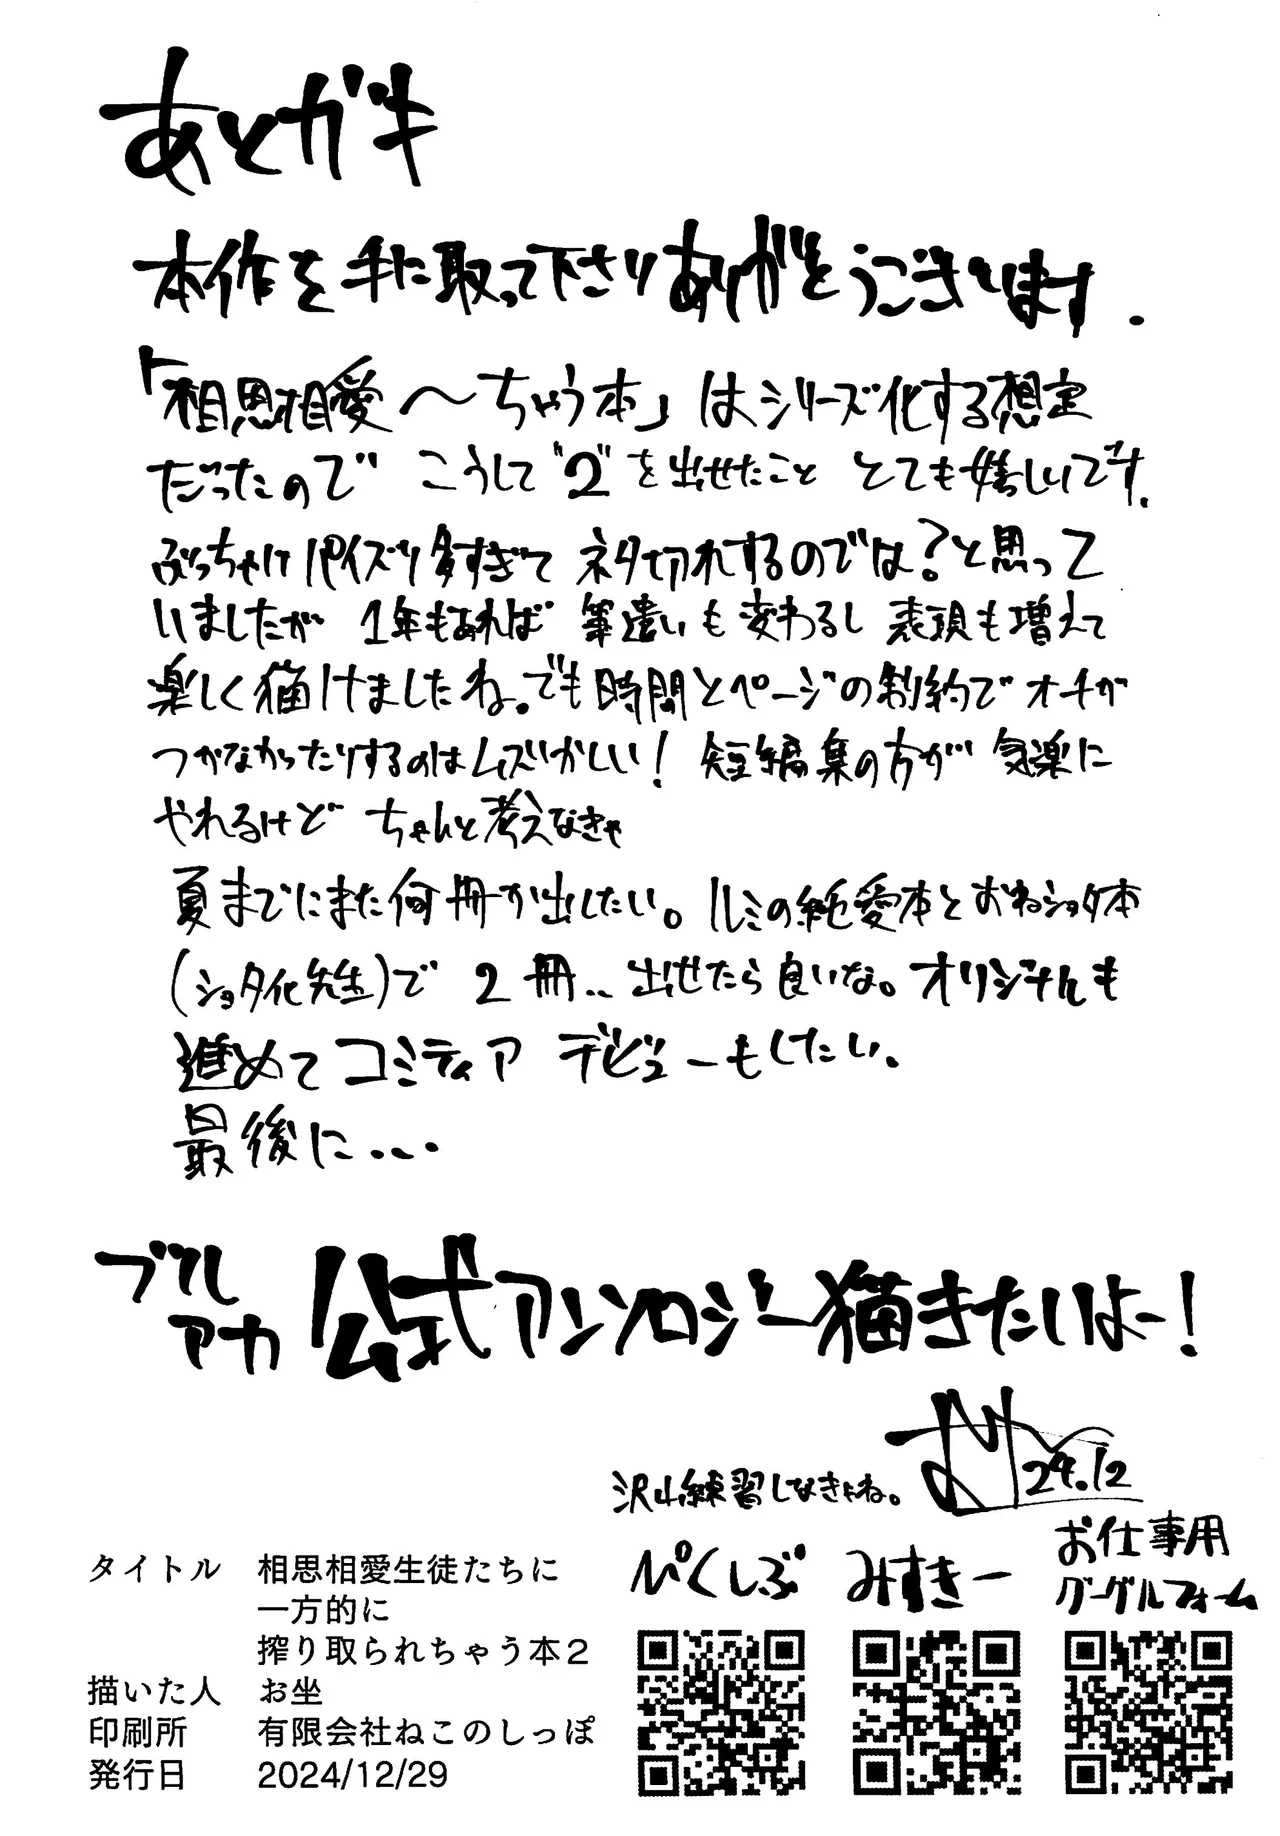 あとガキ
本作を手に取って下さりありがとうございます.
「相思相愛～ちゃう本」はシリーズ化する想定
だったので こうして"2"を出せたこと とても嬉しいです.
ぶっちゃけパイズリ多すぎて ネタ切れするのでは?と思って
いましたが 1年もあれば 筆遣いも変わるし 表現も増えて
楽しく描けましたね。でも時間とページの制約でオチが
つかなかったりするのはムズいかしい! 短編集の方が 気楽に
やれるけど ちゃんと考えなきゃ
夏までにまた何冊か出したい。ルミの純愛本とおねショタ本
(ショタ化先生)で 2冊.. 出せたら良いな。オリジナルも
進めてコミティア デビューもしたい.
最後に....
ブルアカ 公式アンソロジー描きたいよー!
24.12
沢山練習しなきゃね。
タイトル 相思相愛生徒たちに
一方的に
搾り取られちゃう本2
描いた人 お坐
印刷所 有限会社ねこのしっぽ
発行日 2024/12/29
ぴくしぶ
みすきー
お仕事用
グーグルフォーム